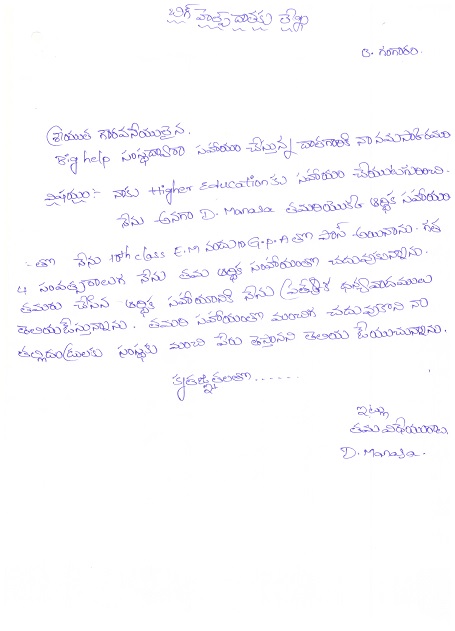 బిగ్ హెల్ప్ దాతకు లేఖ
ది. గంగారం.
శ్రీయుత గౌరవనీయులైన,
Big help సంస్థద్వారా సహాయం చేస్తున్న దాతగారికి నా నమస్కారము
విషయం:- నాకు Higher Education కు సహాయం చేయుటగురించి.
నేను అనగా D. Manasa తమరియొక్క ఆర్థిక సహాయం
- తో నేను 10th class E.M నందు G.P.A తో పాస్ అయినాను. గత
4 సంవత్సరాలుగ నేను తమ ఆర్థిక సంహాయంతో చదువుకున్నాను.
తమరు చేసిన ఆర్థిక సహాయానికి నేను ప్రత్యేక ధన్యవాదములు
తెలియజేస్తున్నాను. తమరి సహాయంతో మంచిగ చదువుకొని నా
తల్లిదండ్రులకు సంస్థకు మంచి పేరు తెస్తానని తెలియ జేయుచున్నాను.
కృతజ్ఞతలతో......
ఇట్లు
తమ విధేయురాలు,
D. Manasa.